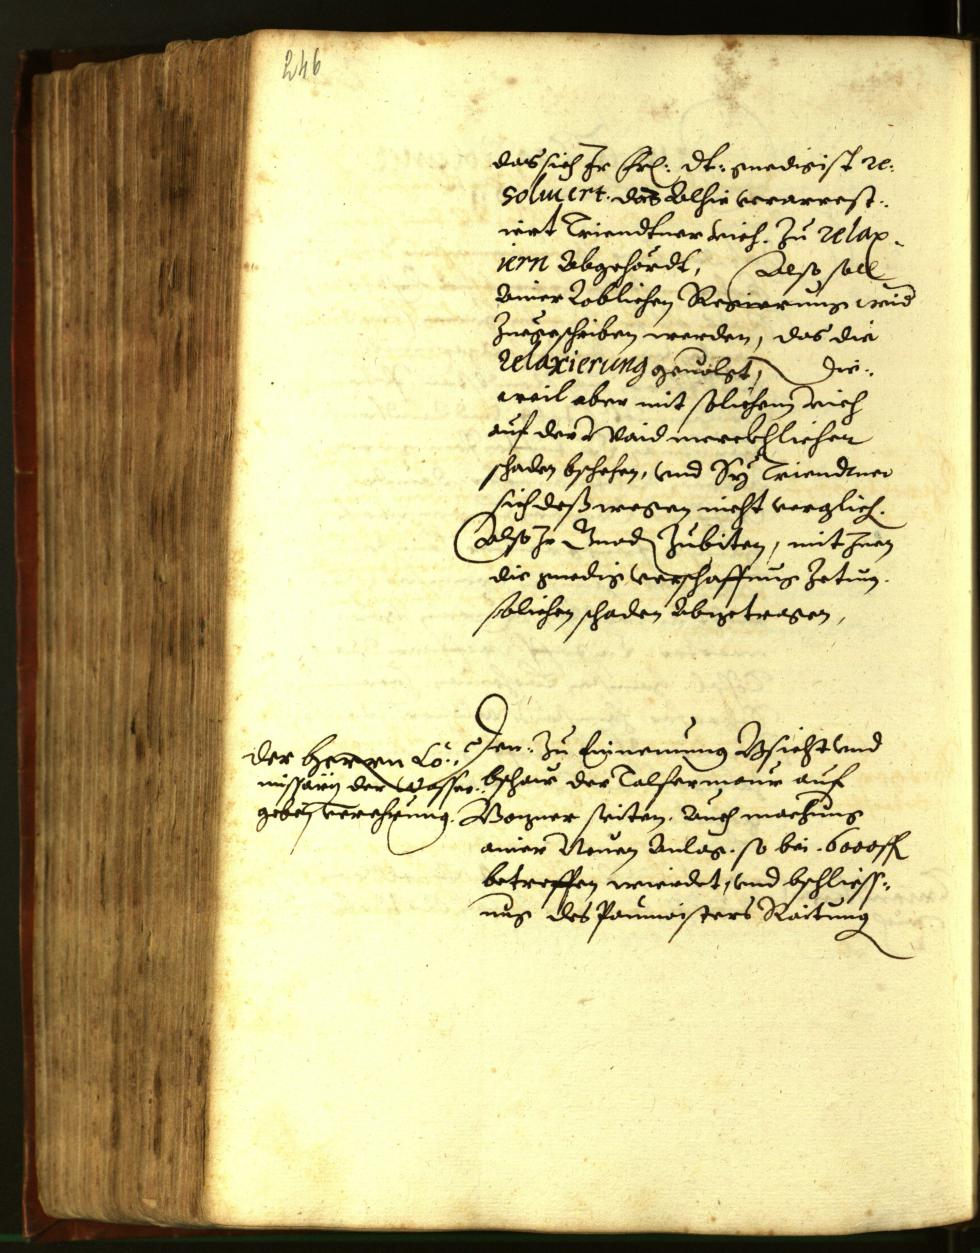 246
das sich Ir Frl: Dt: genedigist re:
soluiert. das Alhie verarrest:
iert Triendtner vich. zu relax-
iern Abgehördt, Also soll
ainer Loblichen Regierung wid
Zuegeschriben werden, das die
relaxierung geuolgt, Die:
weil aber mit solichem vich
auf der Waid merckhlicher
schaden bschehen, vnd Sy Triendtner
sich deßwegen nicht verglich.
Also Ir Gnad Zubiten, mit Inen
die genedig verschaffung Zetun.
solichen schaden Abzetragen,
Der Herrn Co:
missarÿ der Wasser:
geben verehrung.
Den: Zu Einnemung Bsicht vnd
bschaw der Talfermaur auf
Bozner seiten. Auch machung
ainer Neuen Anlag. so bei 6000 fl
betreffen wierdet, vnd bschliess:
ung des Paumaisters Raitung